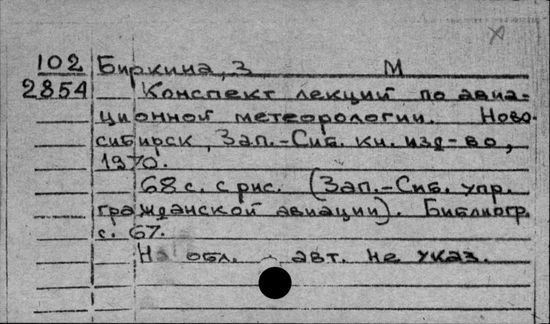 102 Биркина, З М
2854 Конспект лекций по авиа-
ционной метеорологии. Ново-
сибирск, Зап.-Сиб. кн. изд-во,
1970.
68 с. с рис. (Зап.-Сиб. упр.
гражданской авиации). Библиогр.
с. 67.
На обл. авт. не указ.